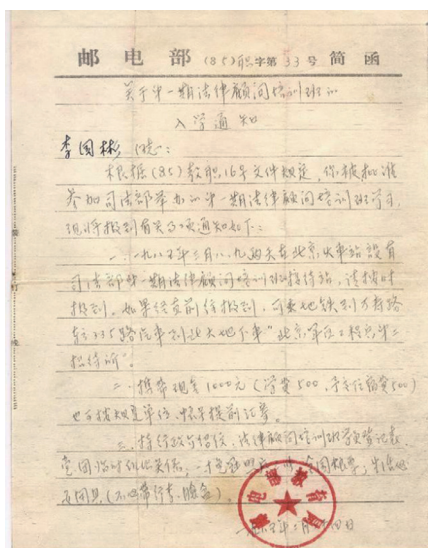 邮电部(85)职字第33号简函
关于第一期法律顾问培训班的
入学通知
李国彬同志:
根据(85)教职16号文件规定,你被批准
参加司法部举办的第一期法律顾问培训班学习,
现将报到有关事项通知如下:
一、一九八五年三月八、九两天在北京火车站设有
司法部第一期法律顾问培训班接待站,请按时
报到。如果经变前往报到,可乘地铁到万寿路
转335路汽车到北大地下车"北京军区工程兵第二
招待所"。
二、携带现金1000元(学费500、予交住宿费500)
也可按规定单位
三、持行政介绍信、法律顾问培训班学员登记表、
党团临时组织关系、一寸免冠照片
(不必带行李、脸盆)。
邮电部教育局
一九八五年二月十四日